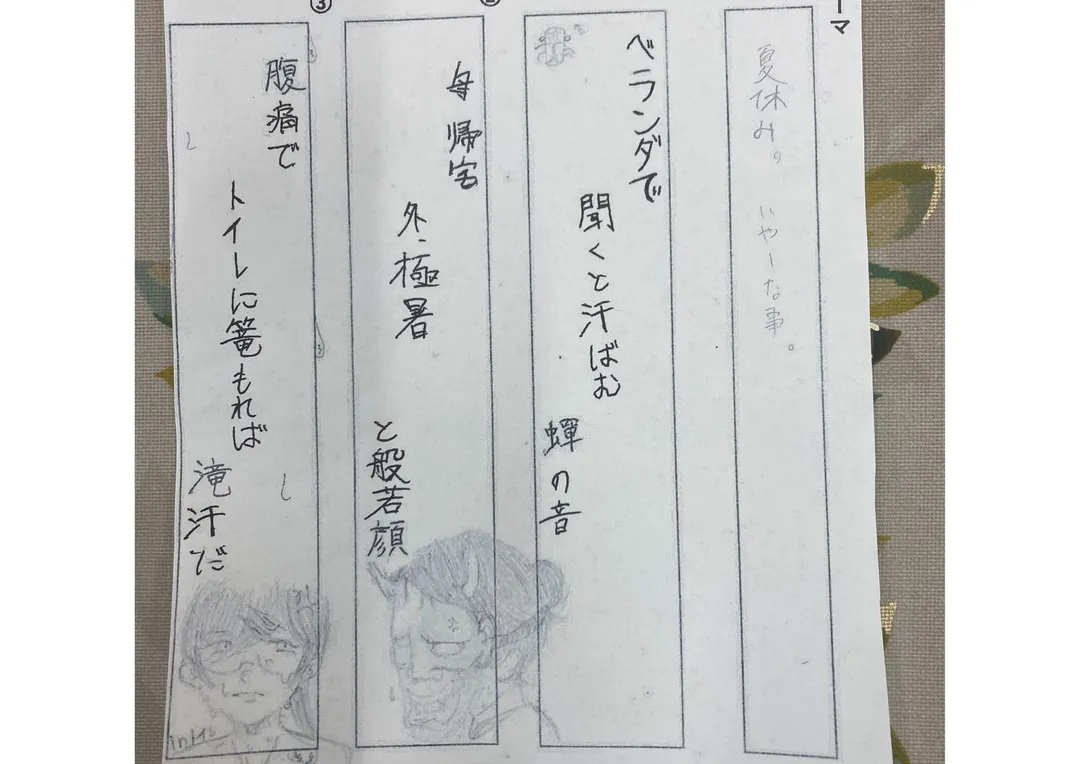 ーマ
夏休み。 いやーな事。
ベランダで
聞くと汗ばむ
蝉の音
母帰宅
外、極暑
と般若顔
③
腹痛で
トイレに篭もれば
滝汗だ